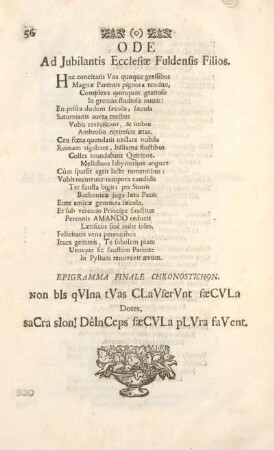 56
ODE
Ad Jubilantis Ecclesiæ Fuldensis Filios.
Huc concitatis Vos quoque gressibus
Magnæ Parentis pignora tendite,
Complexu quotquot gratioso
In gremio studiosa nutrit:
En prisca dudum sæcula, sæcula
Saturnianis aurea rotibus
Vobis reviviscunt, & imbut
Ambrosio reviresctt ætas.
Ceu fœta quondam nectare nubila
Romam rigabant, balsama fluctibus
Colles inundabant Quirinos,
Mellifluos labyrinthus
Cùm sparsit agris lacte rementibus:
Vobis recurrunt tempora candida
Ter fausta bigis: per Sionis
Buchonicæ juga læta Pacis
Eunt amicæ gemmea sæcula,
Et sub verendo Principe faustitas
Perennis AMANDO reducit
Lætitiem sine nube soles.
Felicitatis vena perennibus
Inaurat gemmis, Te sobolem piam
Utrumque sic faustum Parente
In Pylium renovaret ævum.
EPIGRAMMA FINALE CHRONOSTICHON.
Non bIs qVIna tVas CLaVserVnt sæCVLa
Dotes,
saCra sIon! DeInCeps sæCVLa pLVra faVent.